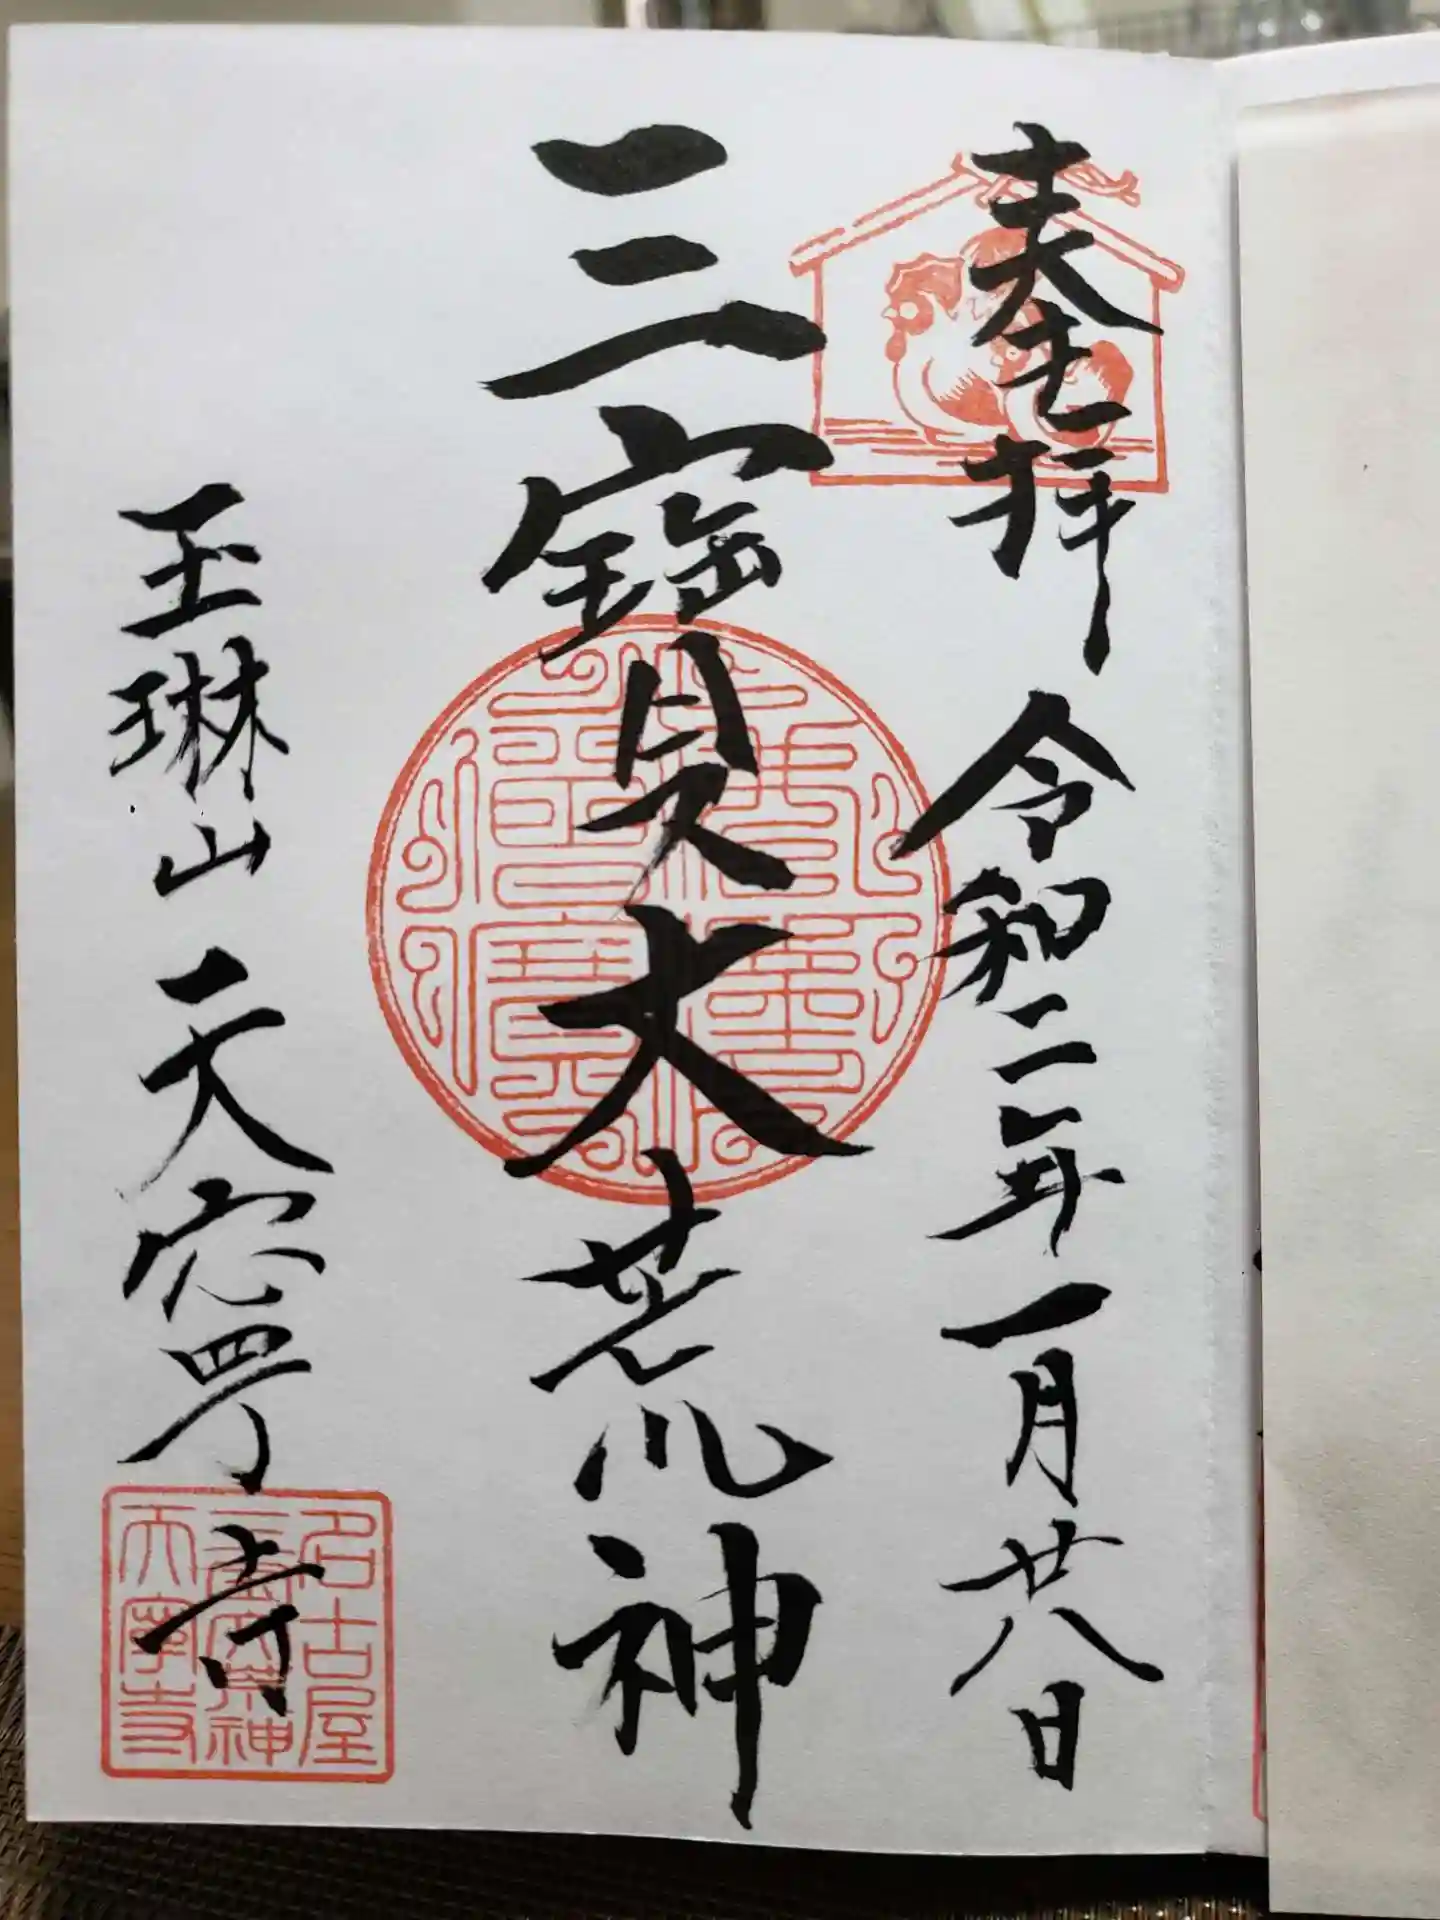 奉拝
令和二年一月廿八日
三寳大荒神
玉琳山 天寧寺
名古屋
三寳荒神
天寧寺